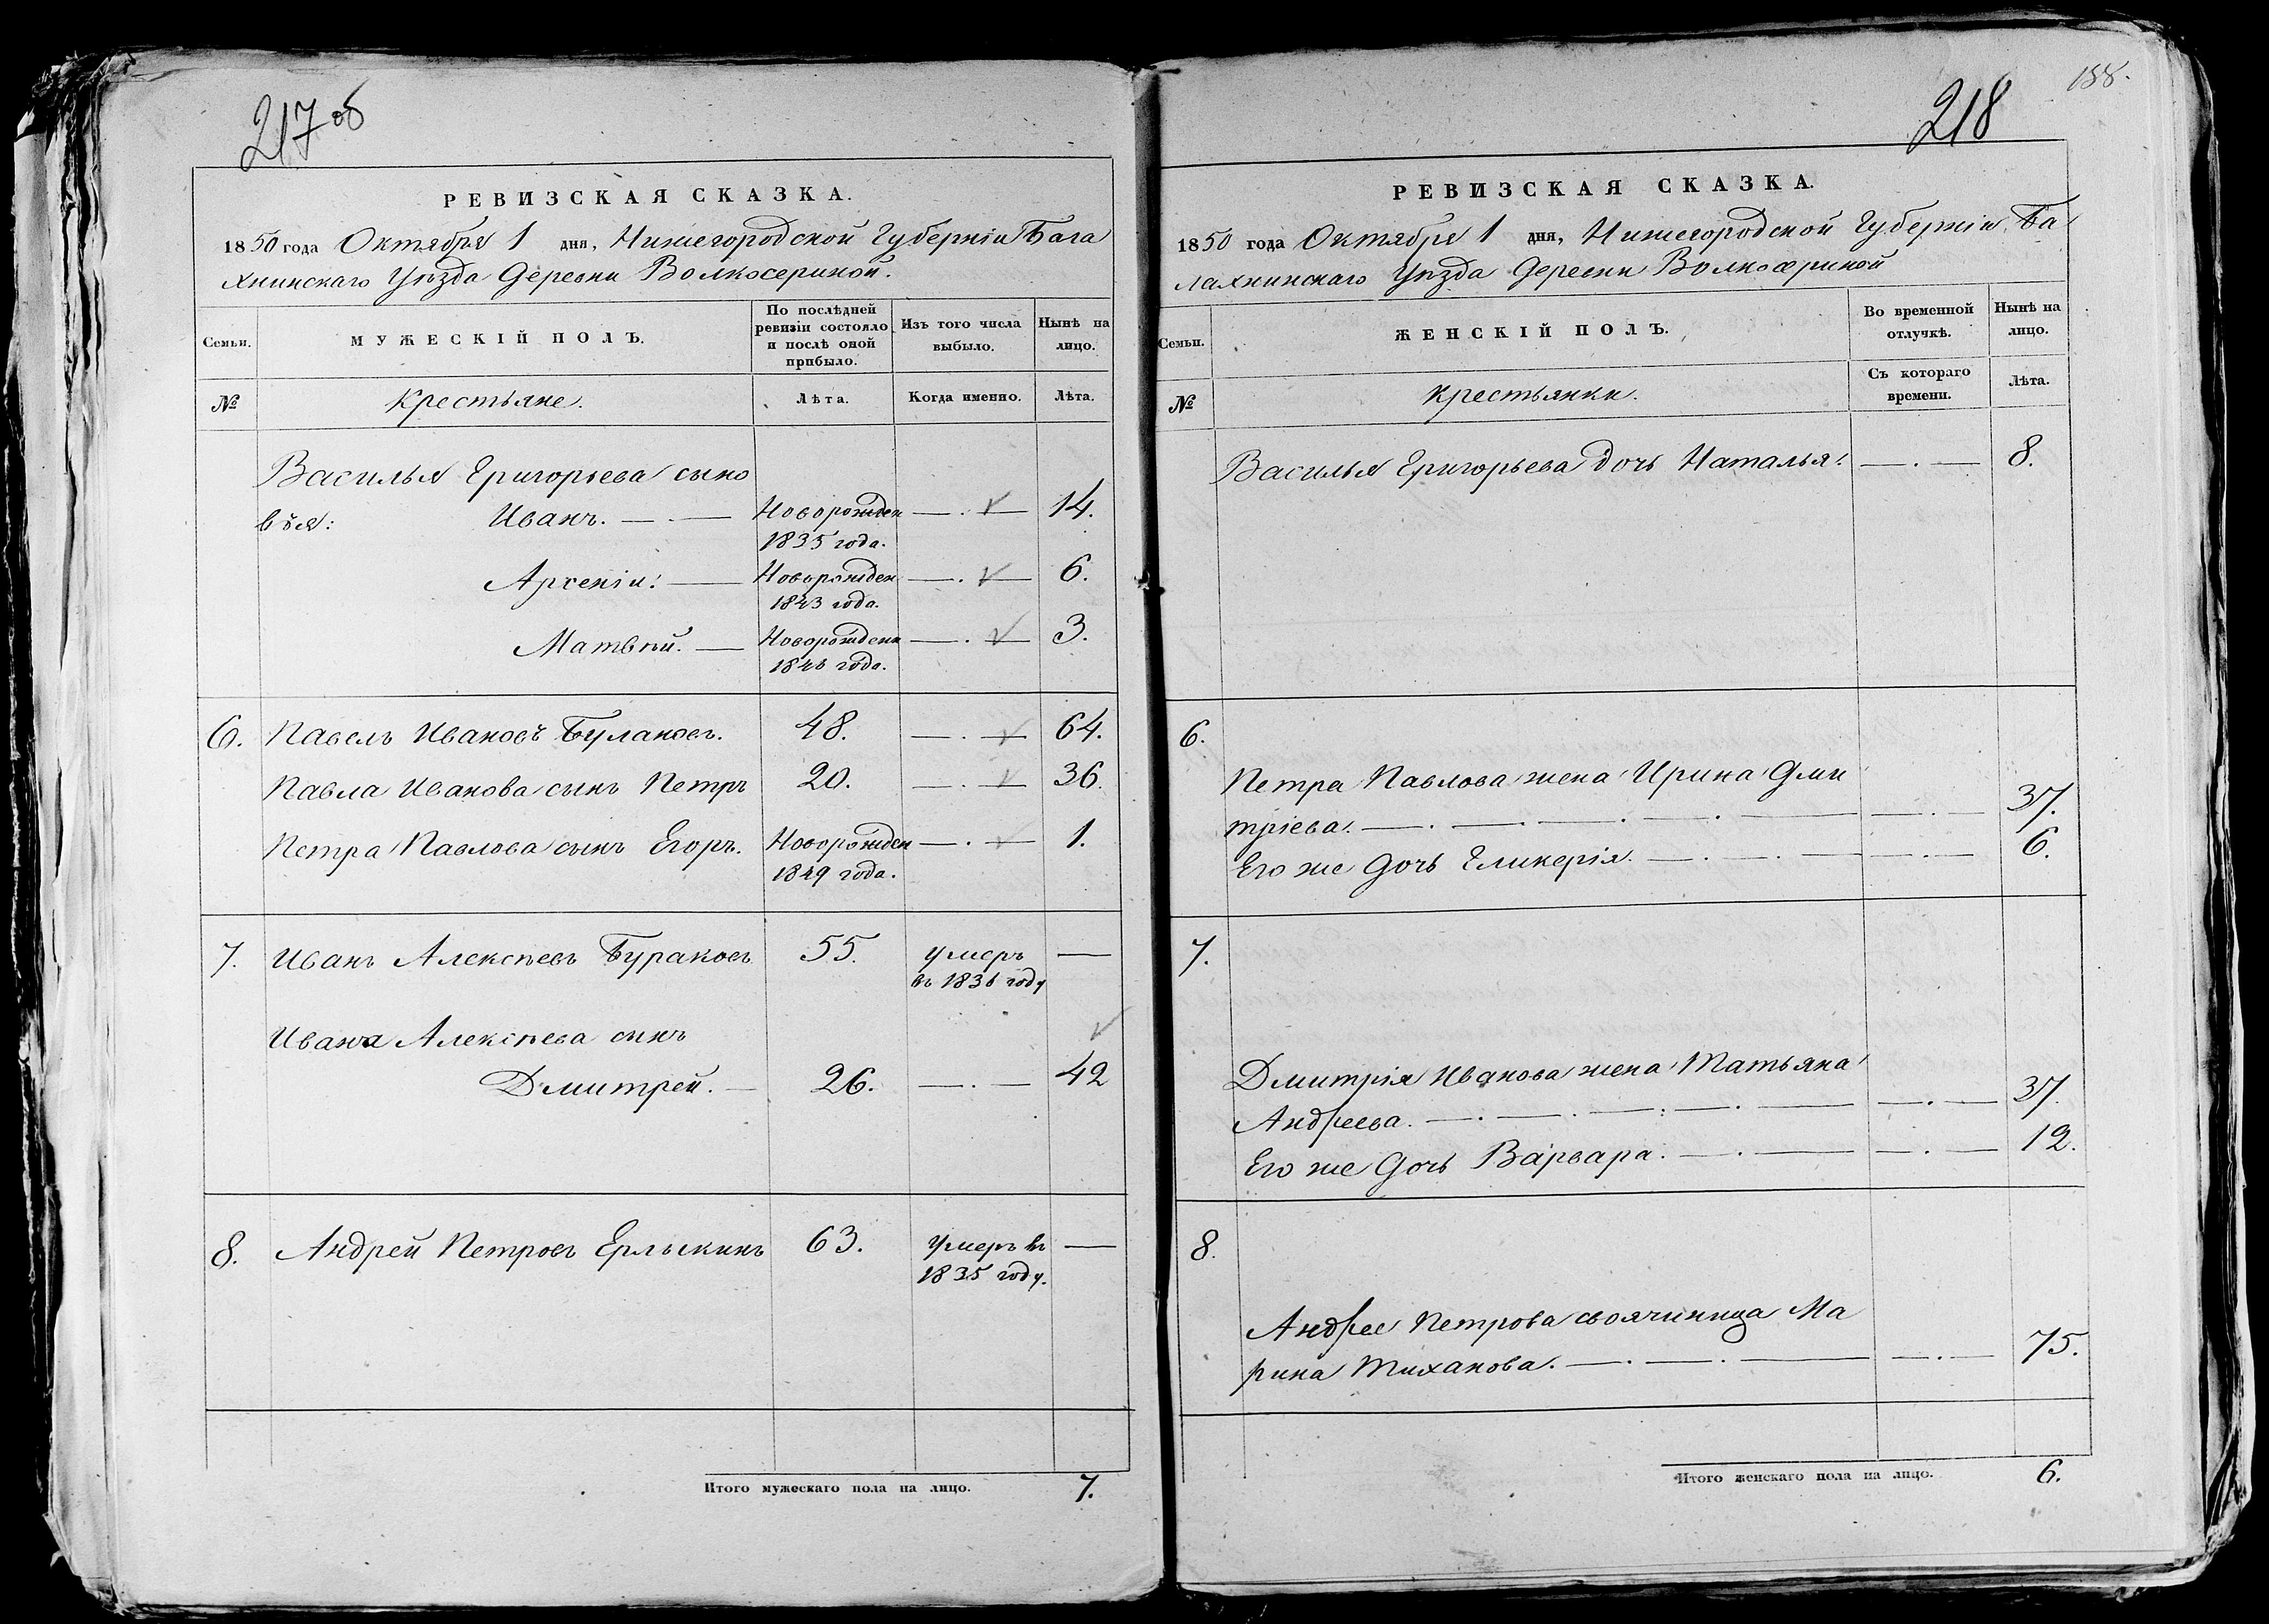 217 об
РЕВИЗСКАЯ СКАЗКА.
1850 года Октября 1 дня, Нижегородской Губерніи Бала
хнинскаго Уѣзда Деревни Волкосериной.
Семьи.
МУЖЕСКІЙ ПОЛЪ.
По послѣдней
ревизіи состояло
и послѣ оной
прибыло.
Изъ того числа
выбыло.
Нынѣ на
лицо.
№
Крестьяне.
Лѣта.
Когда именно.
Лѣта.
Василья Григорьева сыно
вья: Иванъ. Новорожден 14.
1835 года.
Арсеній. Новорожден 6.
1843 года.
Матвѣй. Новорожденн 3.
1846 года.
6. Павелъ Ивановъ Булановъ. 48. 64.
Павла Иванова сынъ Петръ 20. 36.
Петра Павлова сынъ Егоръ. Новорожден 1.
1849 года.
7. Иванъ Алексѣевъ Бураковъ 55. умеръ —
въ 1836 году
Ивана Алексѣева сынъ
Дмитрей. 26. 42
8. Андрей Петровъ Ерлыкинъ 63. Умеръ въ —
1835 году.
Итого мужескаго пола на лицо. 7.
188.
218
РЕВИЗСКАЯ СКАЗКА.
1850 года Октября 1 дня, Нижегородской Губерніи Ба
лахнинскаго Уѣзда Деревни Волкосериной
Семьи.
ЖЕНСКІЙ ПОЛЪ.
Во временной
отлучкѣ.
Нынѣ на
лицо.
№
Крестьянки.
Съ котораго
времени.
Лѣта.
Василья Григорьева дочь Наталья. 8.
6.
Петра Павлова жена Ирина Дми
тріева. 37.
Его же Дочь Гликерія. 6.
7.
Дмитрія Иванова жена Татьяна
Андреева. 37.
Его же Дочь Варвара. 12.
8.
Андрее Петрова своячиница Ма
рина Тиханова. 75.
Итого женскаго пола на лицо. 6.